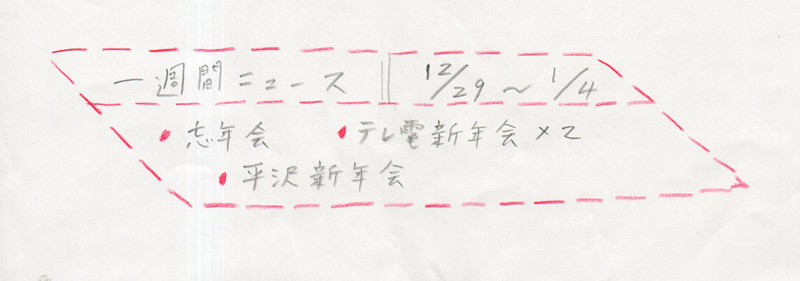 一週間ニュース || 12/29 ~ 1/4
• 忘年会 • テレ電新年会 ×2
• 平沢新年会